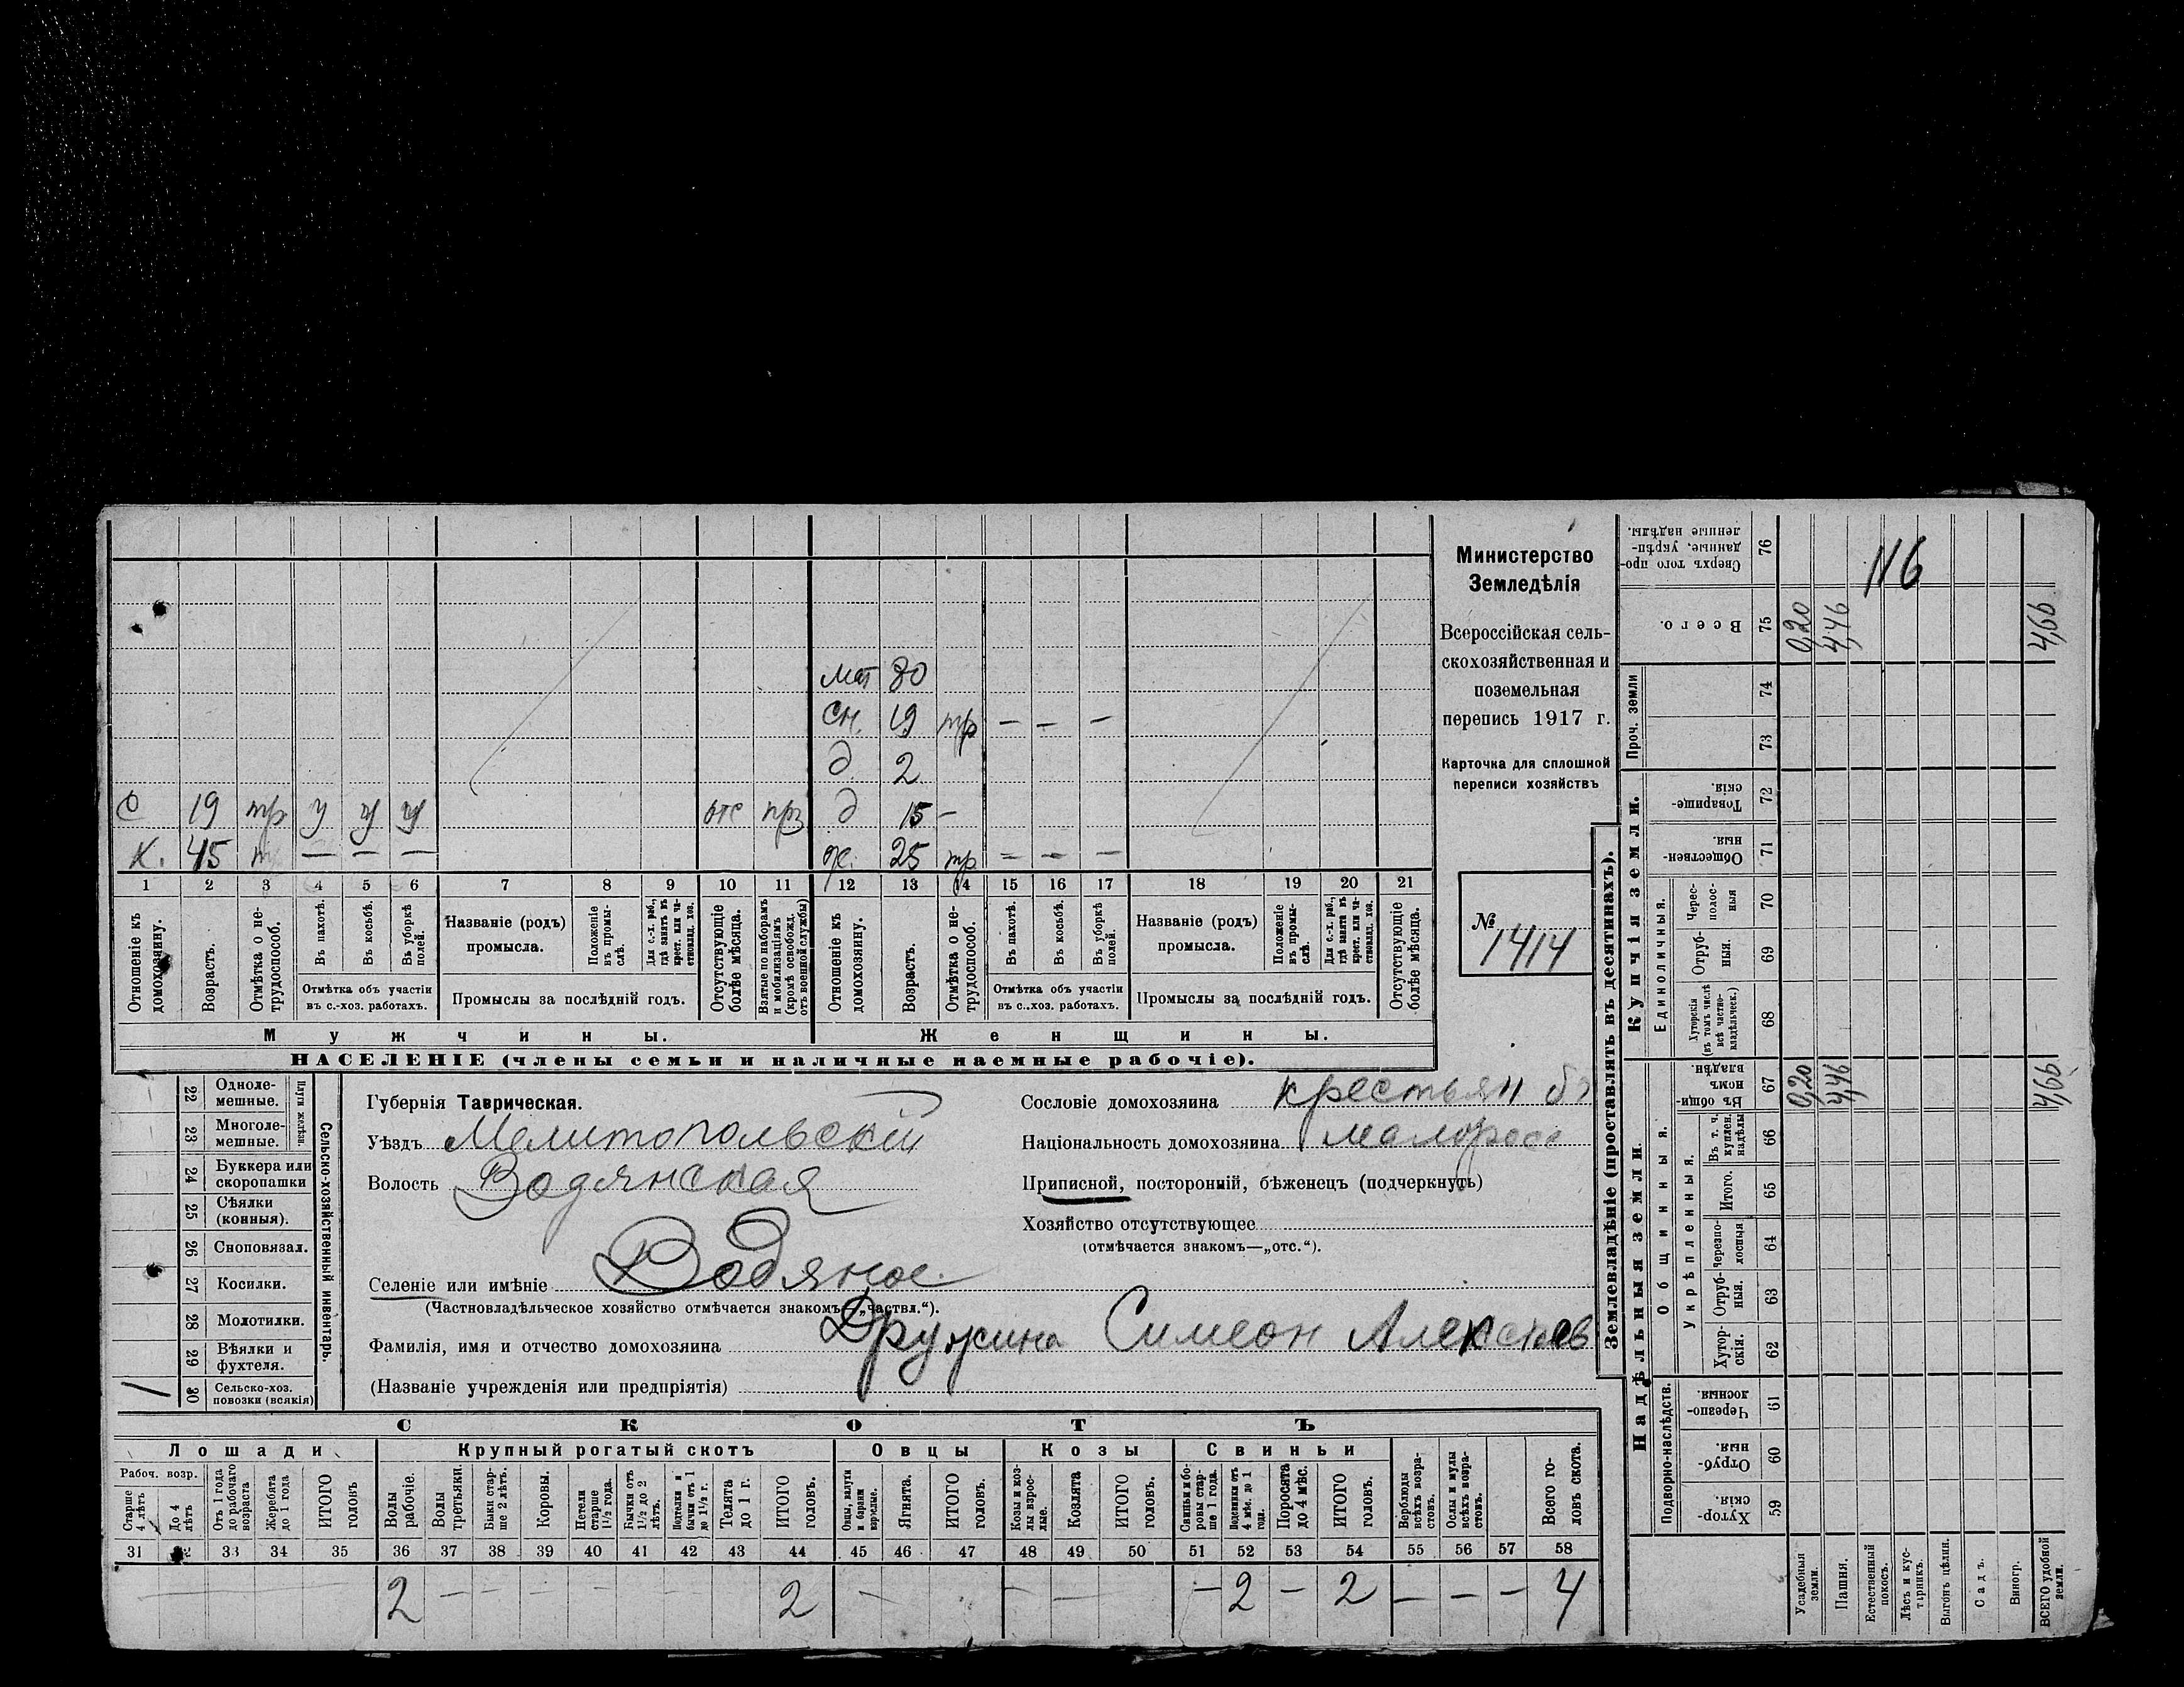 мат 80
сн. 19 тр — — —
д 2
с 19 тр у у у отс прз д 15 —
х. 45 — — — ж. 25 тр — — —
1 2 3 4 5 6 7 8 9 10 11 12 13 14 15 16 17 18 19 20 21
Отношеніе къ домохозяину.
Возрастъ.
Отмѣтка о не-
трудоспособ.
Въ пахотѣ.
Въ косьбѣ.
Въ уборкѣ
полей.
Отмѣтка объ участіи
въ с.-хоз. работахъ.
Названіе (родъ)
промысла.
Положеніе
въ промы-
слѣ.
Для с.-х. раб.,
гдѣ занятъ въ
крест. или ча-
стновлад. хоз.
Промыслы за послѣдній годъ.
Отсутствующіе
болѣе мѣсяца.
Взятые по наборамъ
и мобилизаціямъ
(кромѣ освобожд.
отъ военной службы)
Отношеніе къ
домохозяину.
Возрастъ.
Отмѣтка о не-
трудоспособ.
Въ пахотѣ.
Въ косьбѣ.
Въ уборкѣ
полей.
Отмѣтка объ участіи
въ с..хоз. работахъ.
Названіе (родъ)
промысла.
Положеніе
въ промы-
слѣ.
Для с.-х. раб.,
гдѣ занята въ
крест. или ча-
стновлад. хоз.
Промыслы за послѣдній годъ.
Отсутствующіе
болѣе мѣсяца.
Мужчины. Женщины.
НАСЕЛЕНІЕ (члены семьи и наличные наемные рабочіе).
Министерство
Земледѣлія
Всероссійская сель-
скохозяйственная и
поземельная
перепись 1917 г.
Карточка для сплошной
переписи хозяйствъ
№ 1414
22 Одноле-
мешные.
23 Многоле-
мешные.
Плуги желѣзн.
24 Буккера или
скоропашки
25 Сѣялки
(конныя).
26 Сноповязал.
27 Косилки.
28 Молотилки.
29 Вѣялки и
фухтеля.
30 Сельско-хоз.
повозки (всякія)
Сельско-хозяйственный инвентарь.
Губернія Таврическая.
Уѣздъ Мелитопольскій
Волость Водянская
Селеніе или имѣніе Водяное.
(Частновладѣльческое хозяйство отмѣчается знакомъ—„частвл.“).
Фамилія, имя и отчество домохозяина Дружина Симеон Алексеев
(Названіе учрежденія или предпріятія)
Сословіе домохозяина крестьян
Національность домохозяина малоросс
Приписной, посторонній, бѣженецъ (подчеркнуть)
Хозяйство отсутствующее
(отмѣчается знакомъ—„отс.“).
СКОТЪ
Лошади Крупный рогатый скотъ Овцы Козы Свиньи
Рабоч. возр.
Старше
4 лѣтъ
До 4
лѣтъ
Отъ 1 года
до рабочаго
возраста
Жеребята
до 1 года
ИТОГО
головъ
Волы
рабочіе.
Волы
третьяки.
Быки стар-
ше 2 лѣтъ.
Коровы.
Нетели
старше
1½ года.
Бычки отъ
1½ до 2
лѣтъ.
Подтелки и
бычки отъ 1
до 1½ г.
Телята
до 1 г.
ИТОГО
головъ.
Овцы, валухи
и бараны
взрослые.
Ягнята.
ИТОГО
головъ.
Козы и коз-
лы взрос-
лые.
Козлята
ИТОГО
головъ.
Свиньи и бо-
ровы стар-
ше 1 года.
Подсвинки отъ
4 мѣс. до 1
года.
Поросята
до 4 мѣс.
ИТОГО
головъ.
Верблюды
всѣхъ возра-
стовъ.
Ослы и мулы
всѣхъ возра-
стовъ.
Всего го-
ловъ скота.
31 33 34 35 36 37 38 39 40 41 42 43 44 45 46 47 48 49 50 51 52 53 54 55 56 57 58
2 — 2 — — — 2 — 2 — — — 4
Землевладѣніе (проставлять въ десятинахъ).
Надѣльныя земли. Купчія земли. Проч. земли
Подворно-наслѣдств. Общинныя.
Укрѣпленныя. Единоличныя.
Хутор-
скія. 59
Отруб-
ныя. 60
Черезпо-
лосныя. 61
Хутор-
скія. 62
Отруб-
ныя. 63
Черезпо-
лосныя 64
Итого. 65
Въ т. ч.
куплен.
надѣлы 66
Въ общи-
номъ
владѣн. 67
Хуторскія
(въ томъ числѣ
всѣ частно-
владѣльческ.) 68
Отруб-
ныя. 69
Черес-
полос-
ныя 70
Обществен-
ныя. 71
Товарище-
скія. 72
73
74
Всего. 75
Сверхъ того про-
данные, укрѣп-
ленные надѣлы. 76
Усадебныя
земли. 0,20 0,20
Пашня. 4,46 4,46
Естественный
покосъ.
Лѣсъ и кус-
тарникъ.
Выгонъ цѣлин.
Садъ.
Виногр.
ВСЕГО удобной
земли. 4,66 4,66
N6